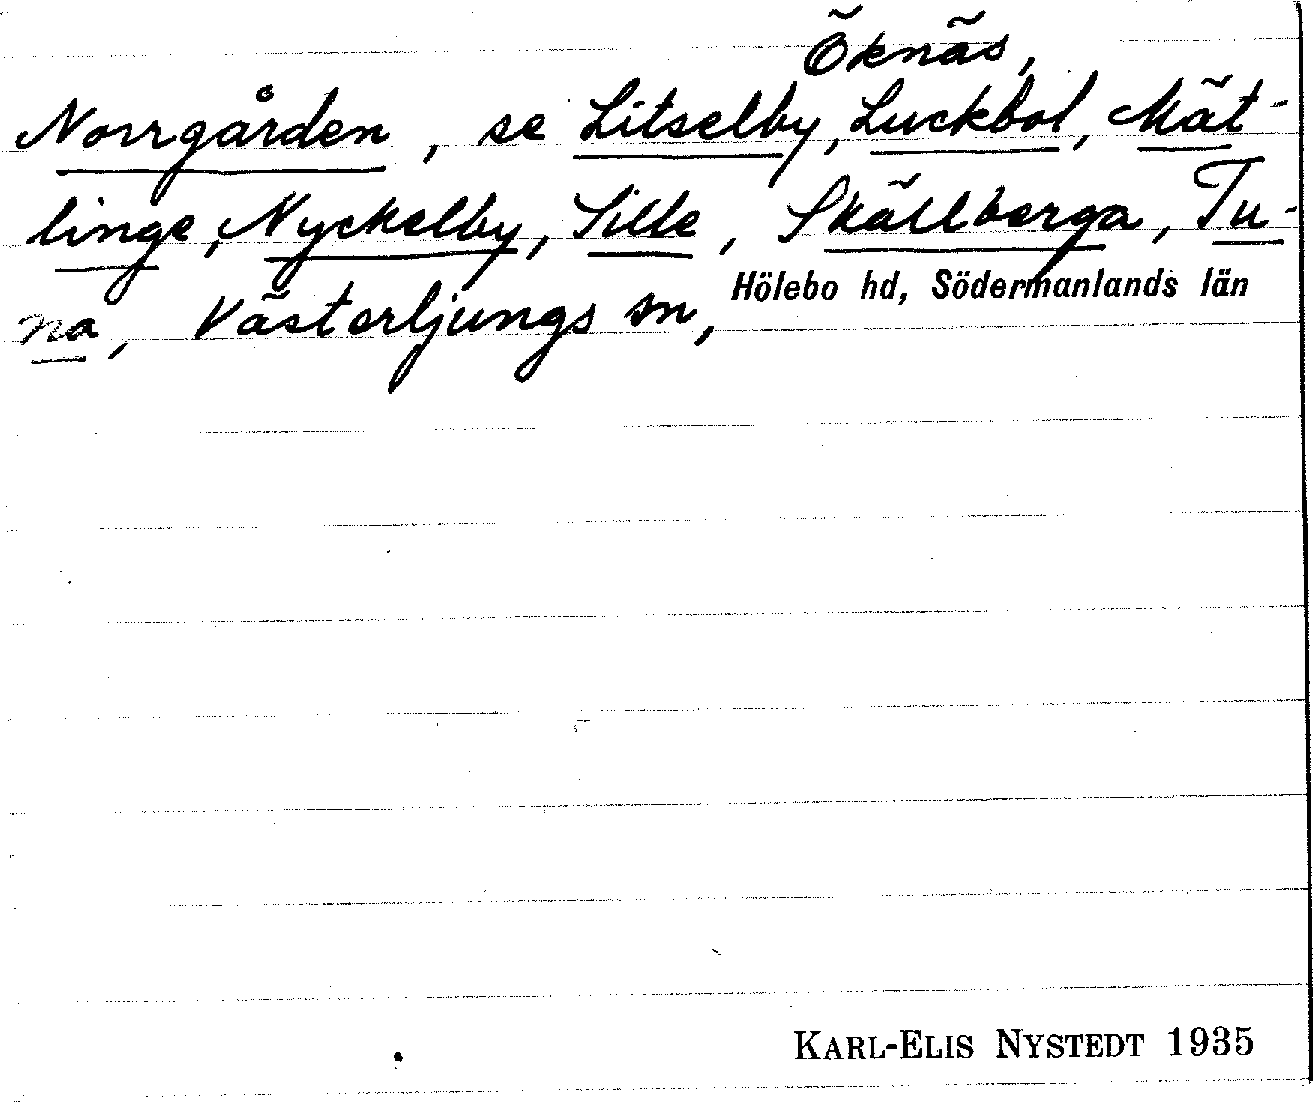 Öknäs,
Norrgården, se Litselby, Luckbol, Mät-
linge, Nyckelby, Sille, Skällberga, Tu-
na, Västerljungs sn, Hölebo hd, Södermanlands län
KARL-ELIS NYSTEDT 1935